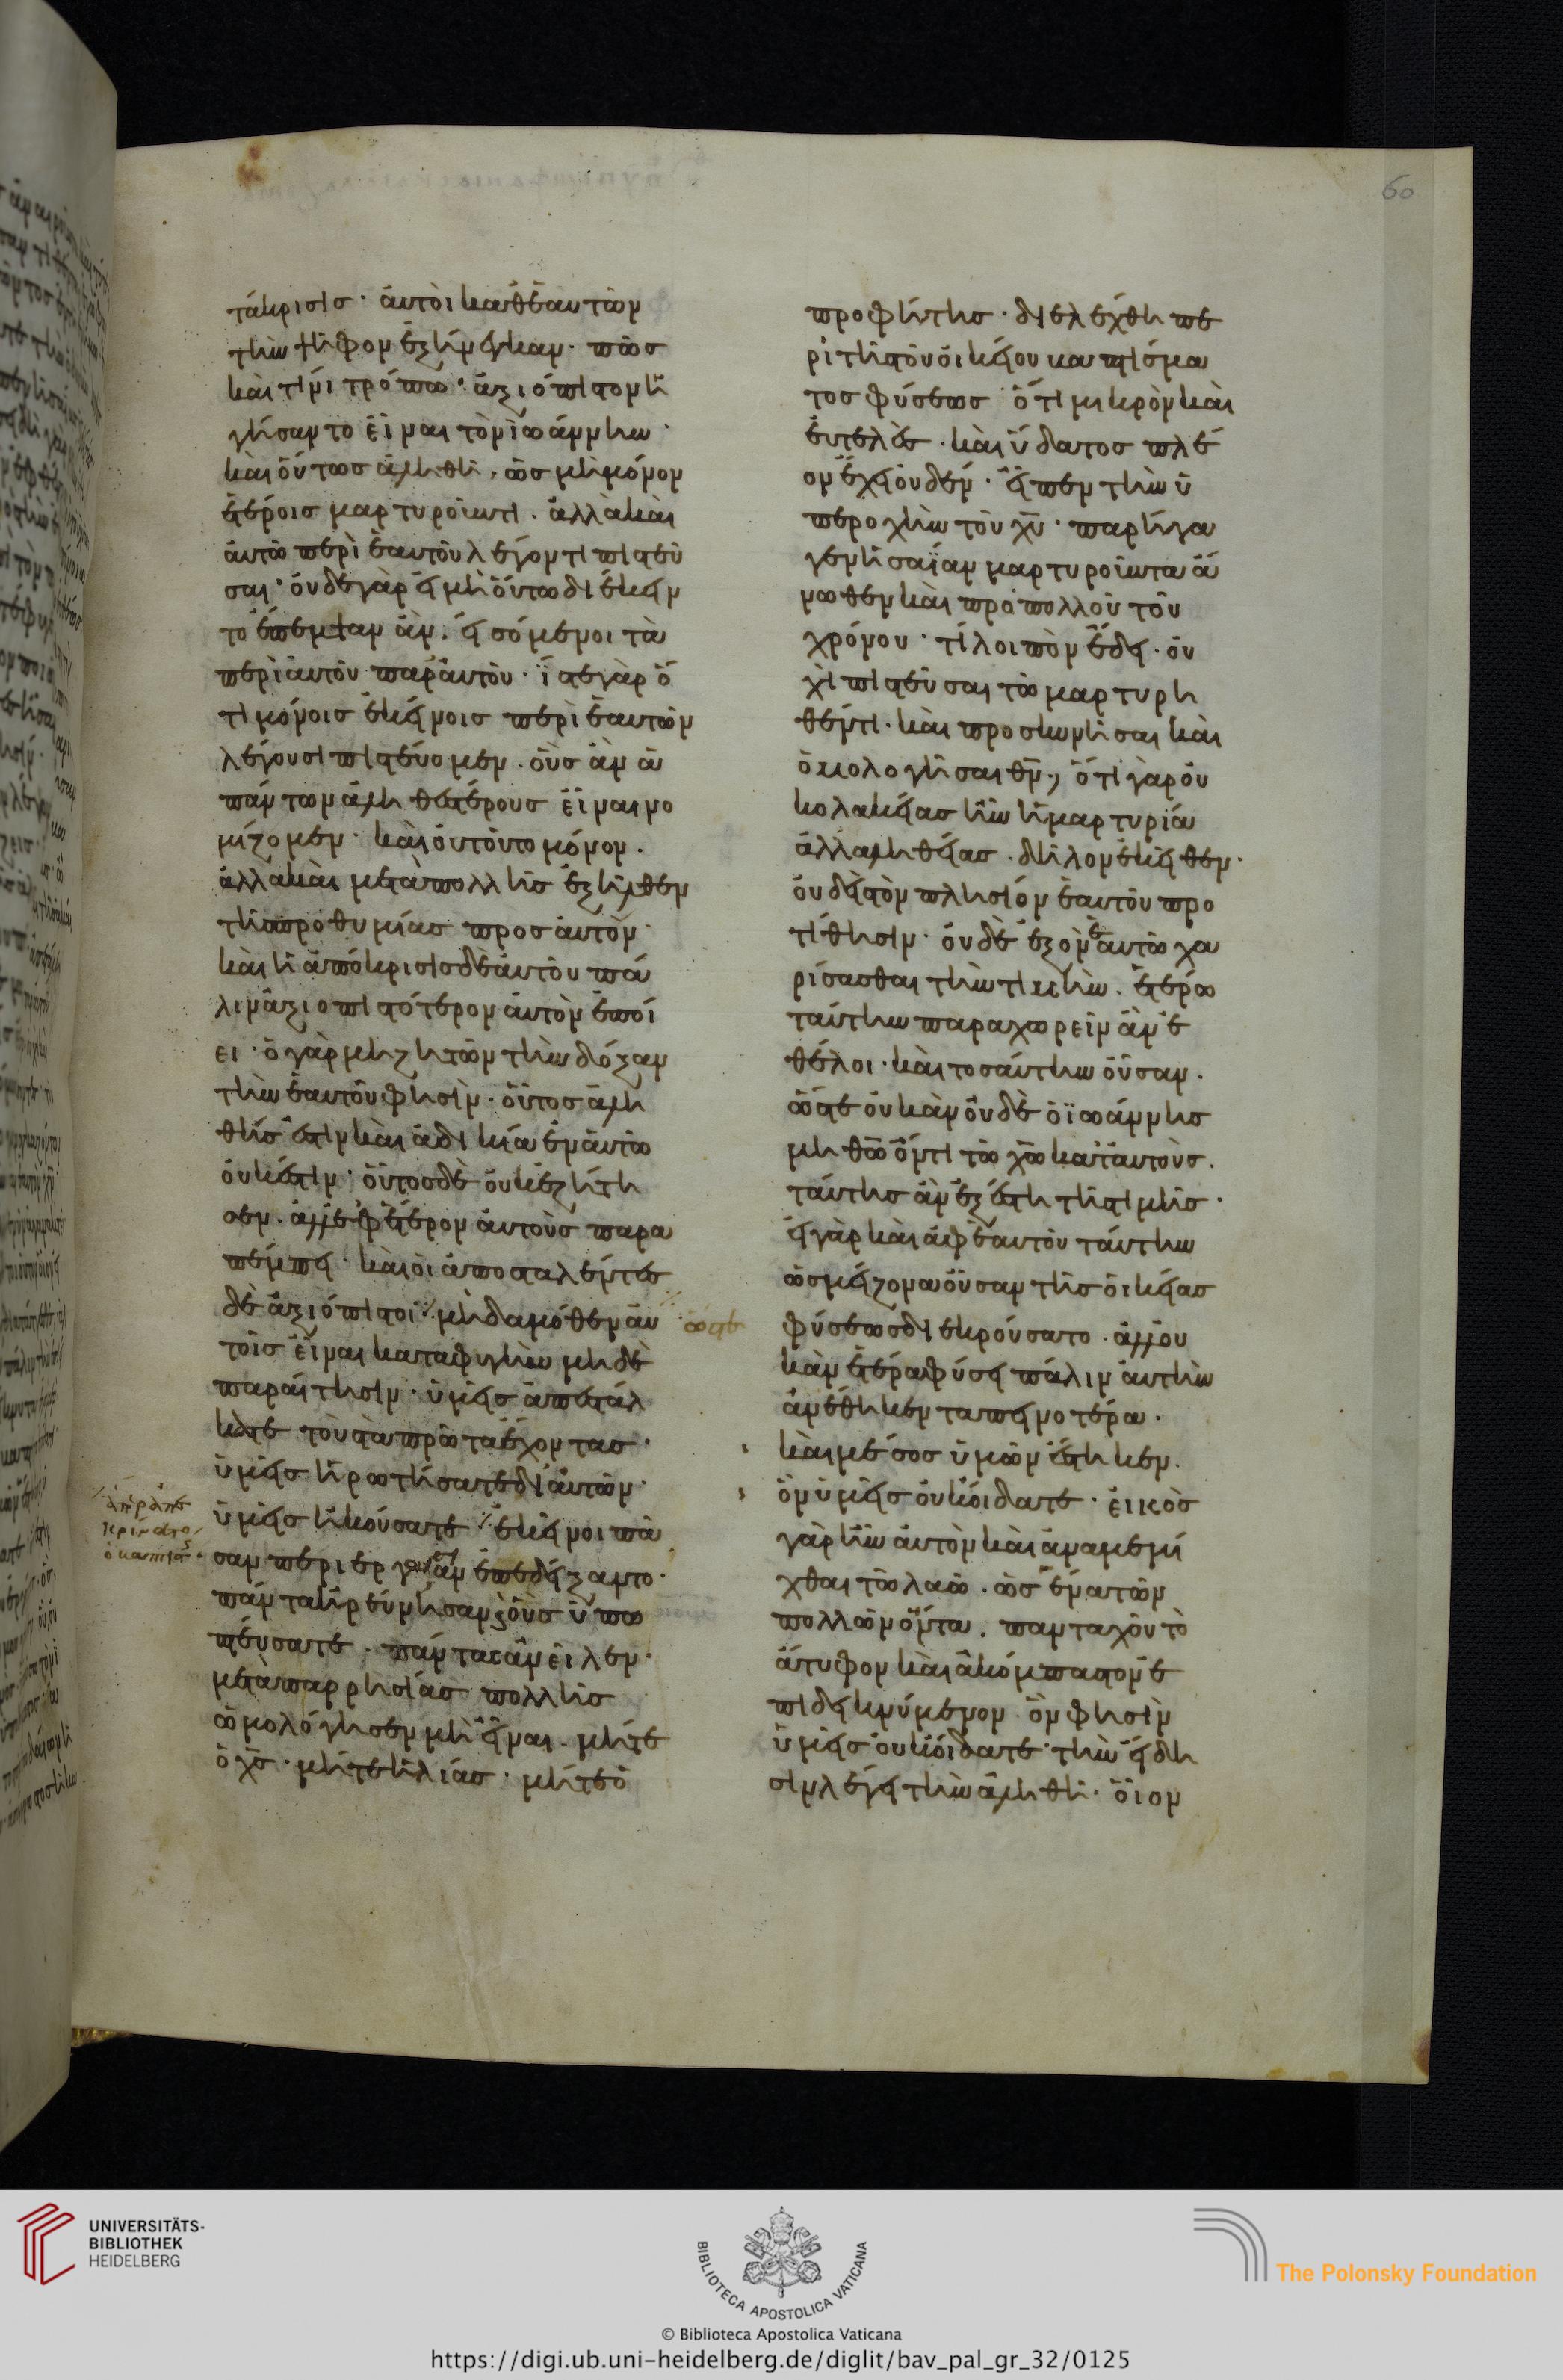 τάκρισις· ἀυτοὶ καθἑαυτῶν
τὴν ψῆφον ἐξήνεγκαν· πῶς
καὶ τίνι τρόπω· ἀξιόπιστον ἡ
γήσαντο εἶναι τὸν ἰωάννην·
καὶ ὄντως ἀληθῆ, ὡς μὴ μόνον
ἑτέροις μαρτυροῦντι. ἀλλὰ καὶ
ἀυτῶ περὶ ἑαυτοῦ λέγοντι πιστεῦ
σαι· ὀυδε γὰρ εἰ μὴ ὄυτω διέκειν
το ἔπεμψαν ἄν. εἰσόμενοι τὰ
περὶ ἀυτοῦ παρἀυτοῦ· ἴστε γὰρ ὅ
τι μόνοις ἐκείνοις περὶ ἑαυτῶν
λέγουσι πιστεύομεν. οὓς ἂν ἁ
πάντων ἀληθεστέρους εἶναι νο
μίζομεν· καὶ ὀυ τοῦτο μόνον.
ἀλλα καὶ μετὰ πολλῆς ἐξῆλθεν
τῆς προθυμίας προς ἀυτὸν·
καὶ ἡ ἀπόκρισις δὲ ἀυτοῦ πά
λιν ἀξιοπιστότερον ἀυτὸν ἐποί
ει· ὁ γὰρ μὴ ζητῶν τὴν δόξαν
τὴν ἑαυτοῦ φησὶν· οὗτος ἀλη
θής ἐστιν καὶ ἀδικία ἐν ἀυτῶ
ὀυκ ἔστιν· οὗτος δὲ ὀυκ ἐζήτη
σεν. ἀλλ ἐφ ἕτερον ἀυτοὺς παρα
πέμπει· καὶ οἱ ἀποσταλέντες
δὲ ἀξιόπιστοι ⁒ μηδαμόθεν ἀυ
⁒ ὥστε
τοῖς εἶναι καταφυγὴν μηδὲ
παραίτησιν· ὑμεῖς ἀπεστάλ
κατε τοὺς τὰ πρῶτα ἔχοντας·
ὑμεῖς ἠρωτήσατε δι ἀυτῶν·
⁒ ἅπερ ἀπε
κρίνατο
ὁ βαπτιστης·
ὑμεῖς ἠκούσατε ⁒ ἐκεῖνοι πᾶ
σαν περιεργίαν ἐπεδείξαντο·
πάντα ἠρεύνησαν οὓς ὑπω
πτεύσατε· πάντας ἀνεῖλεν·
μετὰ παρρησίας πολλῆς
ὡμολόγησεν μὴ εἶναι. μήτε
ὁ χς· μήτε ἠλίας· μήτε ὁ
προφήτης· διελέχθη πε
ρὶ τῆς τοῦ οἰκείου βαπτίσμα
τος φύσεως ὅτι μικρὸν καὶ
ἐυτελὲς· καὶ ὕδατος πλέ
ον ἔχει ὀυδέν· εἶπεν τὴν ὑ
περοχὴν τοῦ χυ· παρήγα
γεν ἡσαΐαν μαρτυροῦντα ἄ
νωθεν καὶ πρὸ πολλοῦ τοῦ
χρόνου· τί λοιπὸν ἔδει· ὀυ
χὶ πιστεῦσαι τῶ μαρτυρη
θέντι· καὶ προσκυνῆσαι καὶ
ὁμολογῆσαι θν, ὅτι γὰρ ὀυ
κολακείας ἦν ἡ μαρτυρία
ἀλλ αληθείας· δῆλον ἐκεῖθεν·
ὀυδεὶς τὸν πλησίον ἑαυτοῦ προ
τίθησιν· ὀυδὲ ἐξὸν ἑαυτῶ χα
ρίσασθαι τὴν τιμὴν. ἑτέρω
ταύτην παραχωρεῖν ἂν ἐ
θέλοι· καὶ τοσαύτην οὖσαν.
ὥστε ὀυκ ἂν ὀυδὲ ὁ ϊωάννης
μὴ θῶ ὄντι τῶ χῶ κατ ἀυτοὺς.
ταύτης ἂν ἐξέστη τῆς τιμῆς·
εἰ γὰρ καὶ ἀφ ἑαυτοῦ ταύτην
ὡς μείζονα οὖσαν τῆς οἰκείας
φύσεως διεκρούσατο· ἀλλ ὀυ
κ ἂν ἑτέρα φύσει πάλιν ἀυτὴν
ἀνέθηκεν ταπεινοτέρα·
καὶ μέσος ὑμῶν ἕστηκεν.
ὃν ὑμεῖς ὀυκ οἴδατε· εἰκὸς
γὰρ ἦν ἀυτὸν καὶ ἀναμεμί
χθαι τῶ λαῶ· ὡς ἕνα τῶν
πολλῶν ὄντα. πανταχοῦ τὸ
ἄτυφον καὶ ἀκόμπαστον ἐ
πιδεικνύμενον ὃν φησὶν
ὑμεῖς ὀυκ οἴδατε· τὴν εἴδη
σιν λέγει τὴν ἀληθῆ· οἷον
60
UNIVERSITÄTS-
BIBLIOTHEK
HEIDELBERG
BIBLIOTECA APOSTOLICA VATICANA
The Polonsky Foundation
© Biblioteca Apostolica Vaticana
https://digi.ub.uni-heidelberg.de/diglit/bav_pal_gr_32/0125